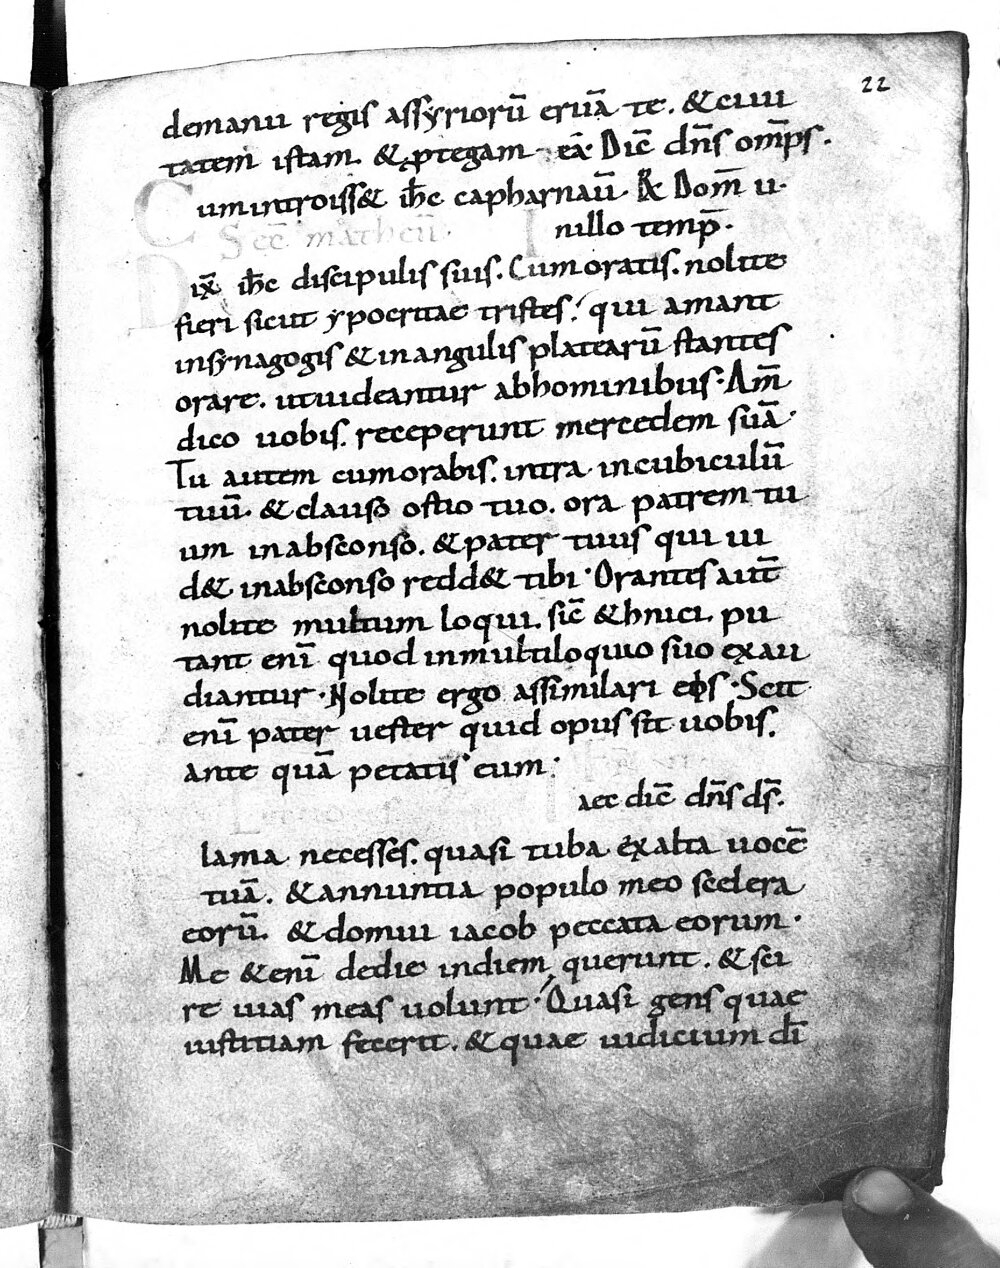 22
demanu regis assyriorū eruā te. &ciui
tatem istam. &ꝓtegam eā. Dic̄ dn̄s omp̄s.
Cumintroiss& ih̄c capharnaū. R Dom̄ u.
Sec̄ matheū. nillo temp̄.
Dix̄ ih̄c discipulis suis. Cumoratis. nolite
fieri sicut ypocritae tristes. qui amant
insynagogis &inangulis platearū stantes
orare. utuideantur abhominibus. Am̄
dico uobis. receperunt mercedem suā.
Tu autem cumorabis. intra incubiculū
tuū. &clauso ostio tuo. ora patrem tu
um inabsconso. &pater tuus qui ui
d& inabsconso redd& tibi. Orantes aut̄
nolite multum loqui. sic̄ &hnici. pu
tant enī quod inmultiloquio suo exau
diantur. Nolite ergo assimilari eos. Scit
enī pater uester quid opus sit uobis.
ante quā petatis eum.
aec dic̄ dn̄s ds̄.
lama necesses. quasi tuba exalta uocē
tuā. &annuntia populo meo scelera
eorū. &domui iacob peccata eorum.
Me &enī dedie indiem querunt. &sci
re uias meas uolunt. Quasi gens quae
iustitiam fecerit. &quae iudicium dī